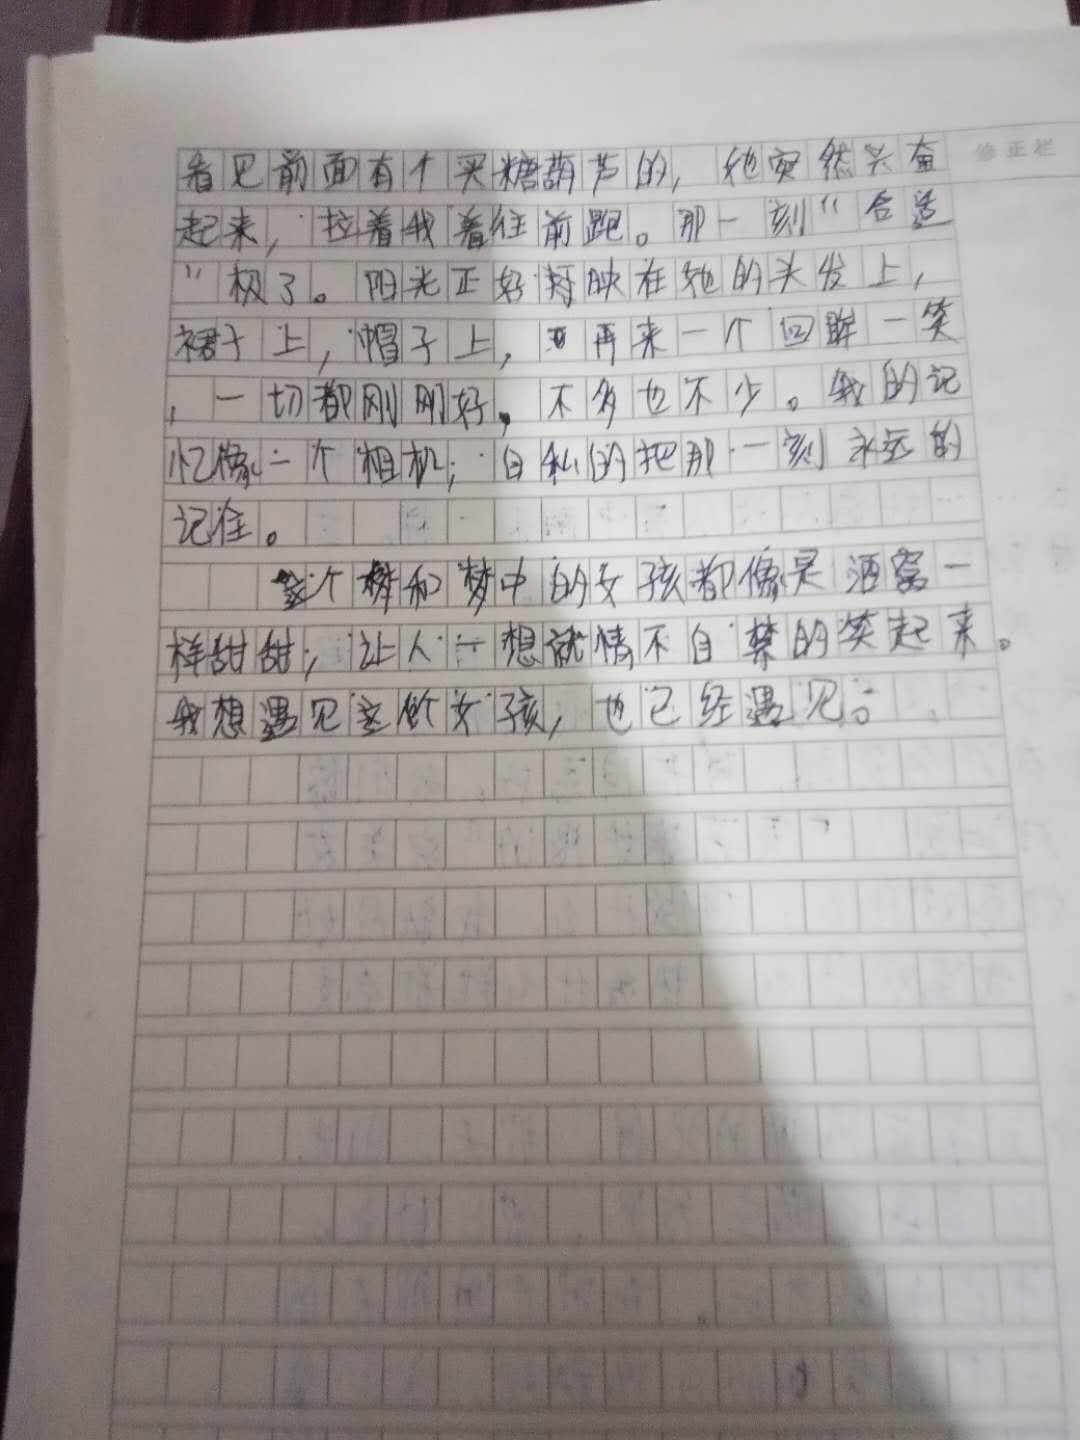 修正栏
看见前面有个买糖葫芦的，她突然兴奋
起来，拉着我着往前跑。那一刻“合适
”极了。阳光正好映在她的头发上，
裙子上，帽子上，再来一个回眸一笑
，一切都刚刚好。不多也不少。我的记
忆像一个相机，自私的把那一刻永远的
记住。
这个梦和梦中的女孩都像是酒窝一
样甜甜，让人一想就情不自禁的笑起来。
我想遇见这个女孩，也已经遇见。